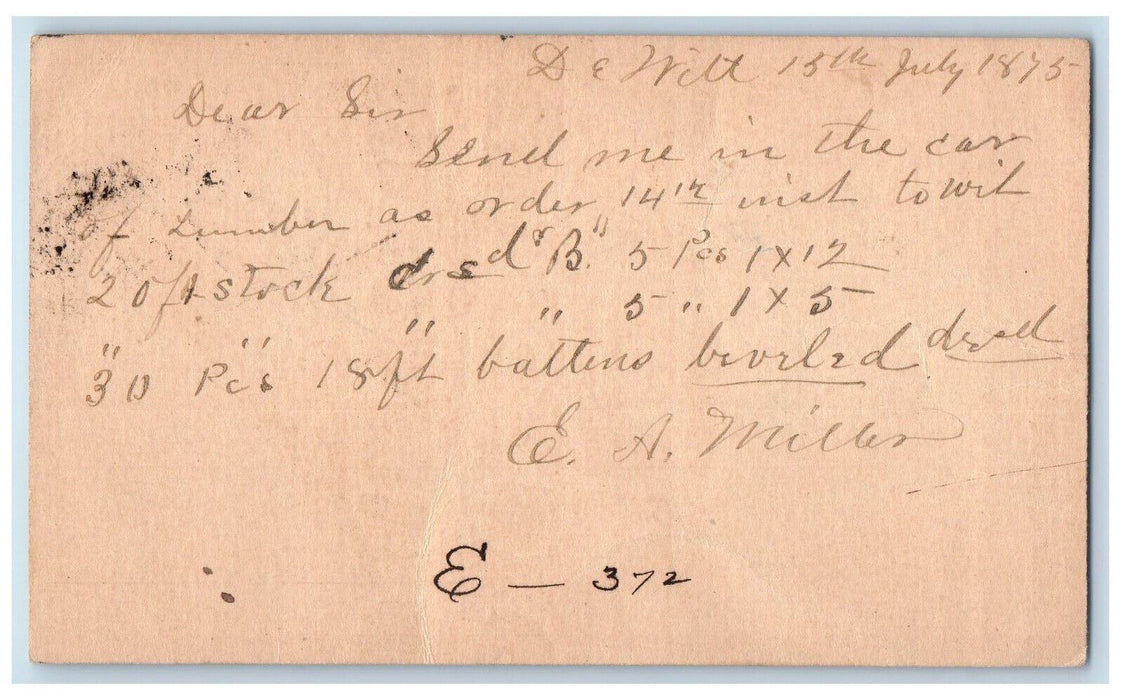 De Witt 15th July 1875
Dear Sir
Send me in the car
of Lumber as order 14th inst towit
20 ft stock drsd "B" 5 Pcs 1 x 12
" " " " 5 " 1 x 5
30 Pcs 18 ft battens beveled dresd
E. A. Miller
E — 372